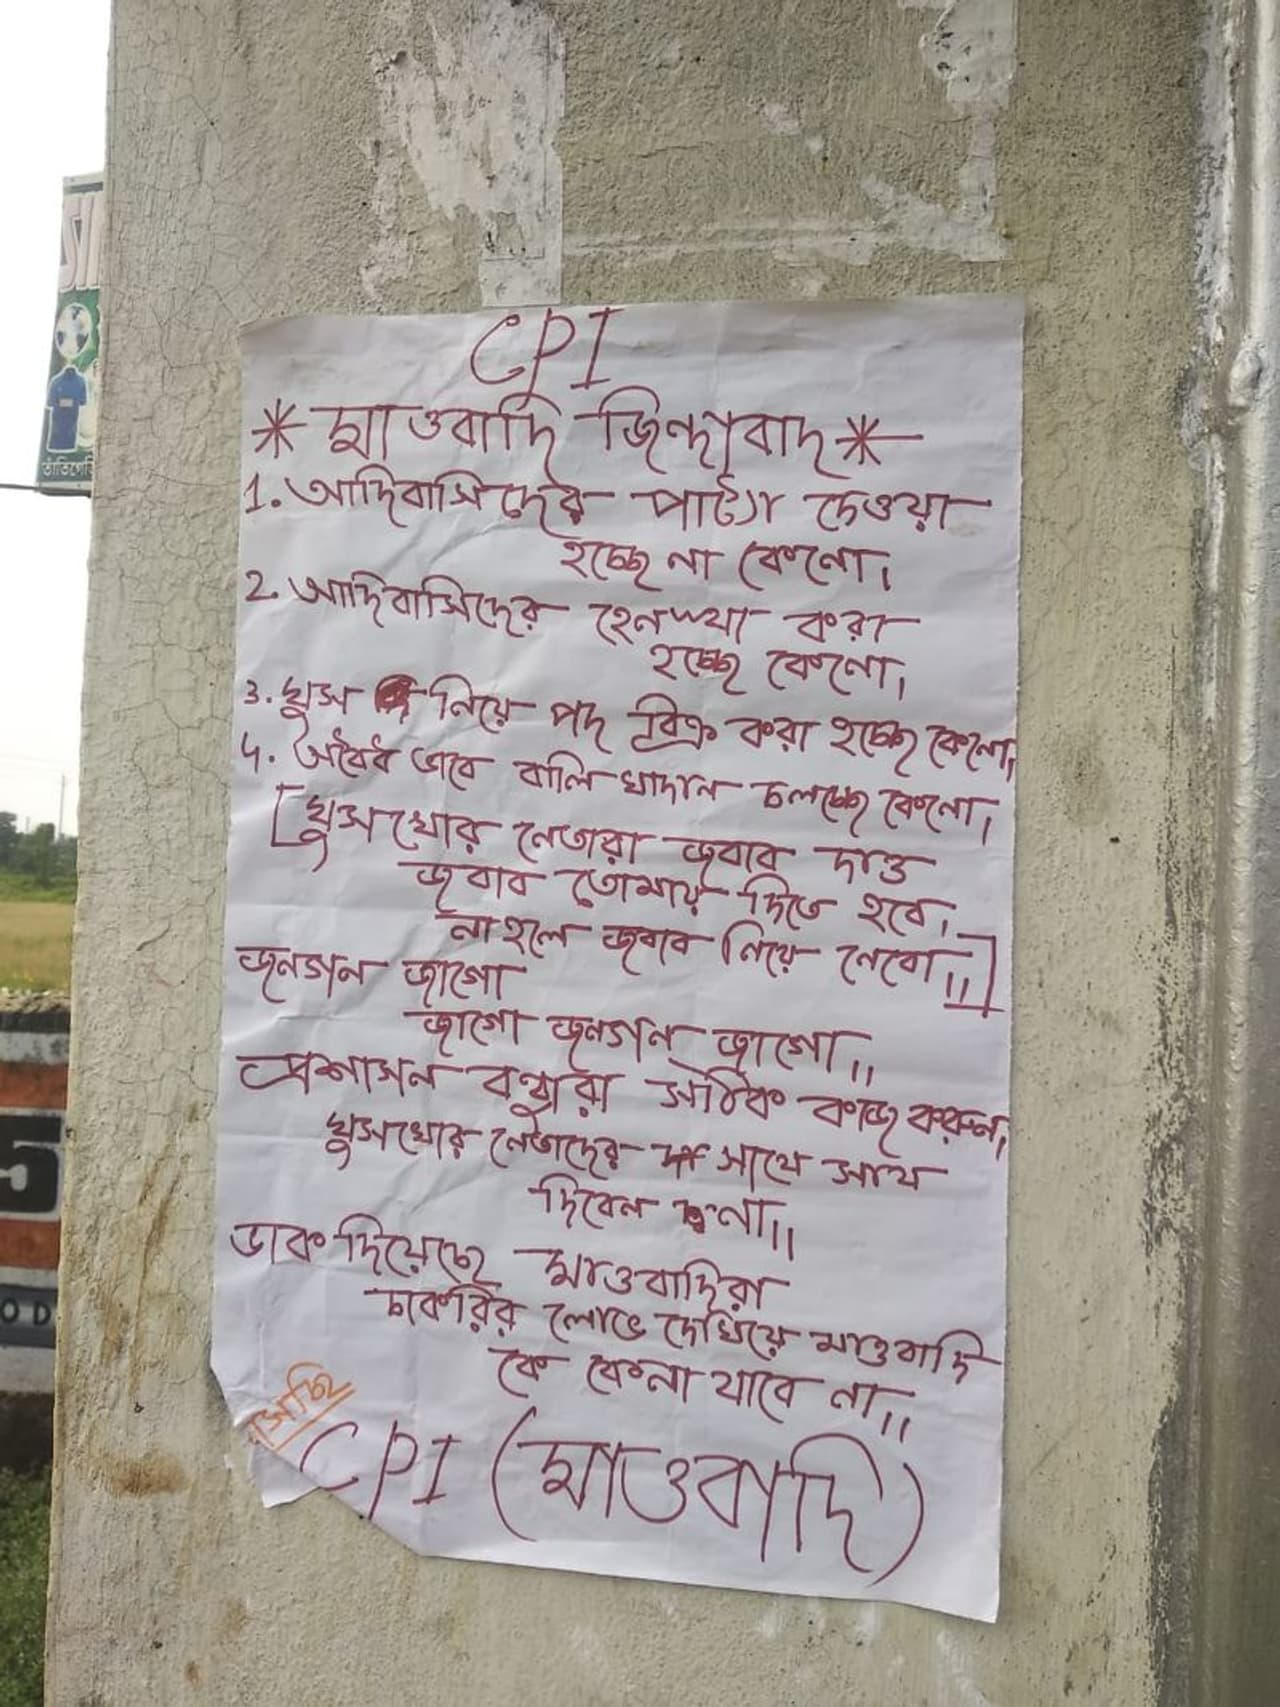 CPI
* মাওবাদি জিন্দাবাদ *
1. আদিবাসিদের পাট্টা দেওয়া
হচ্ছে না কেনো।
2. আদিবাসিদের হেনস্থা করা
হচ্ছে কেনো।
3. ঘুস নিয়ে পদ বিক্র করা হচ্ছে কেনো।
4. অবৈধ ভাবে বালি খাদান চলছে কেনো।
[ঘুসখোর নেতারা জবাব দাও
জবাব তোমায় দিতে হবে।
না হলে জবাব নিয়ে নেবো।।]
জনগন জাগো
জাগো জনগন জাগো।।
প্রশাসন বন্ধুরা সঠিক কাজ করুন।
ঘুসখোর নেতাদের সাথে সাথ
দিবেন না।।
ডাক দিয়েছে মাওবাদিরা
চাকরির লোভ দেখিয়ে মাওবাদি
কে কেনা যাবে না।।
CPI (মাওবাদি)
SI
5
OD